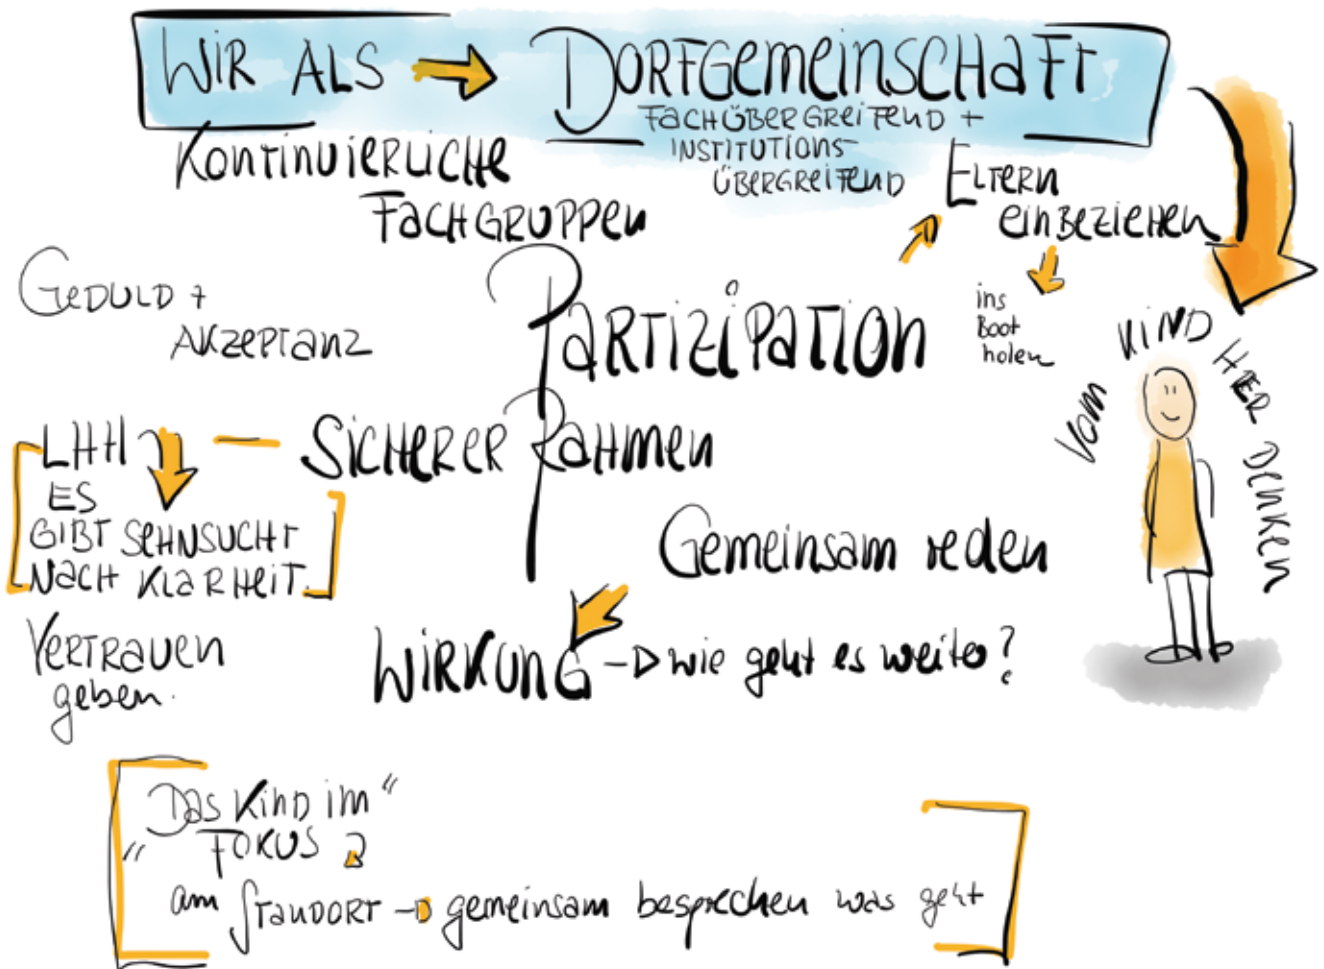 WIR ALS → DORFGEMEINSCHAFT
FACHÜBERGREIFEND +
INSTITUTIONS-
ÜBERGREIFEND
KONTINUIERLICHE
FACHGRUPPEN
ELTERN
EINBEZIEHEN
ins
Boot
holen
GEDULD +
AKZEPTANZ
PARTIZIPATION
VOM KIND HER DENKEN
LHH
SICHERER RAHMEN
ES
GIBT SEHNSUCHT
NACH KLARHEIT.
Gemeinsam reden
VERTRAUEN
geben.
WIRKUNG → wie geht es weiter?
"DAS KIND IM
FOKUS"
am STANDORT → gemeinsam besprechen was geht